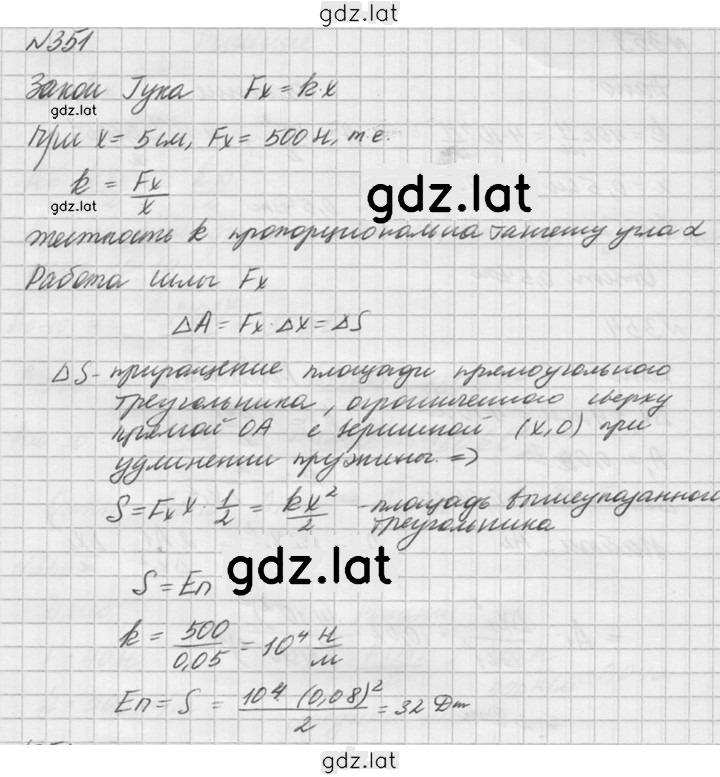 gdz.lat
№351
Закон Гука Fx = k·x
gdz.lat
При x = 5 см, Fx = 500 Н, т.е.
k = Fx/x
gdz.lat
gdz.lat
жесткость k пропорциональна тангенсу угла α
Работа силы Fx
ΔA = Fx·Δx = ΔS
ΔS - приращение площади прямоугольного
треугольника, ограниченного сверху
прямой OA с вершиной (x,0) при
удлинении пружины. =>
S = Fx x · 1/2 = kx²/2 - площадь вышеуказанного
треугольника
gdz.lat
S = Eп
k = 500/0,05 = 10⁴ Н/м
Eп = S = 10⁴·(0,08)²/2 = 32 Дж
gdz.lat